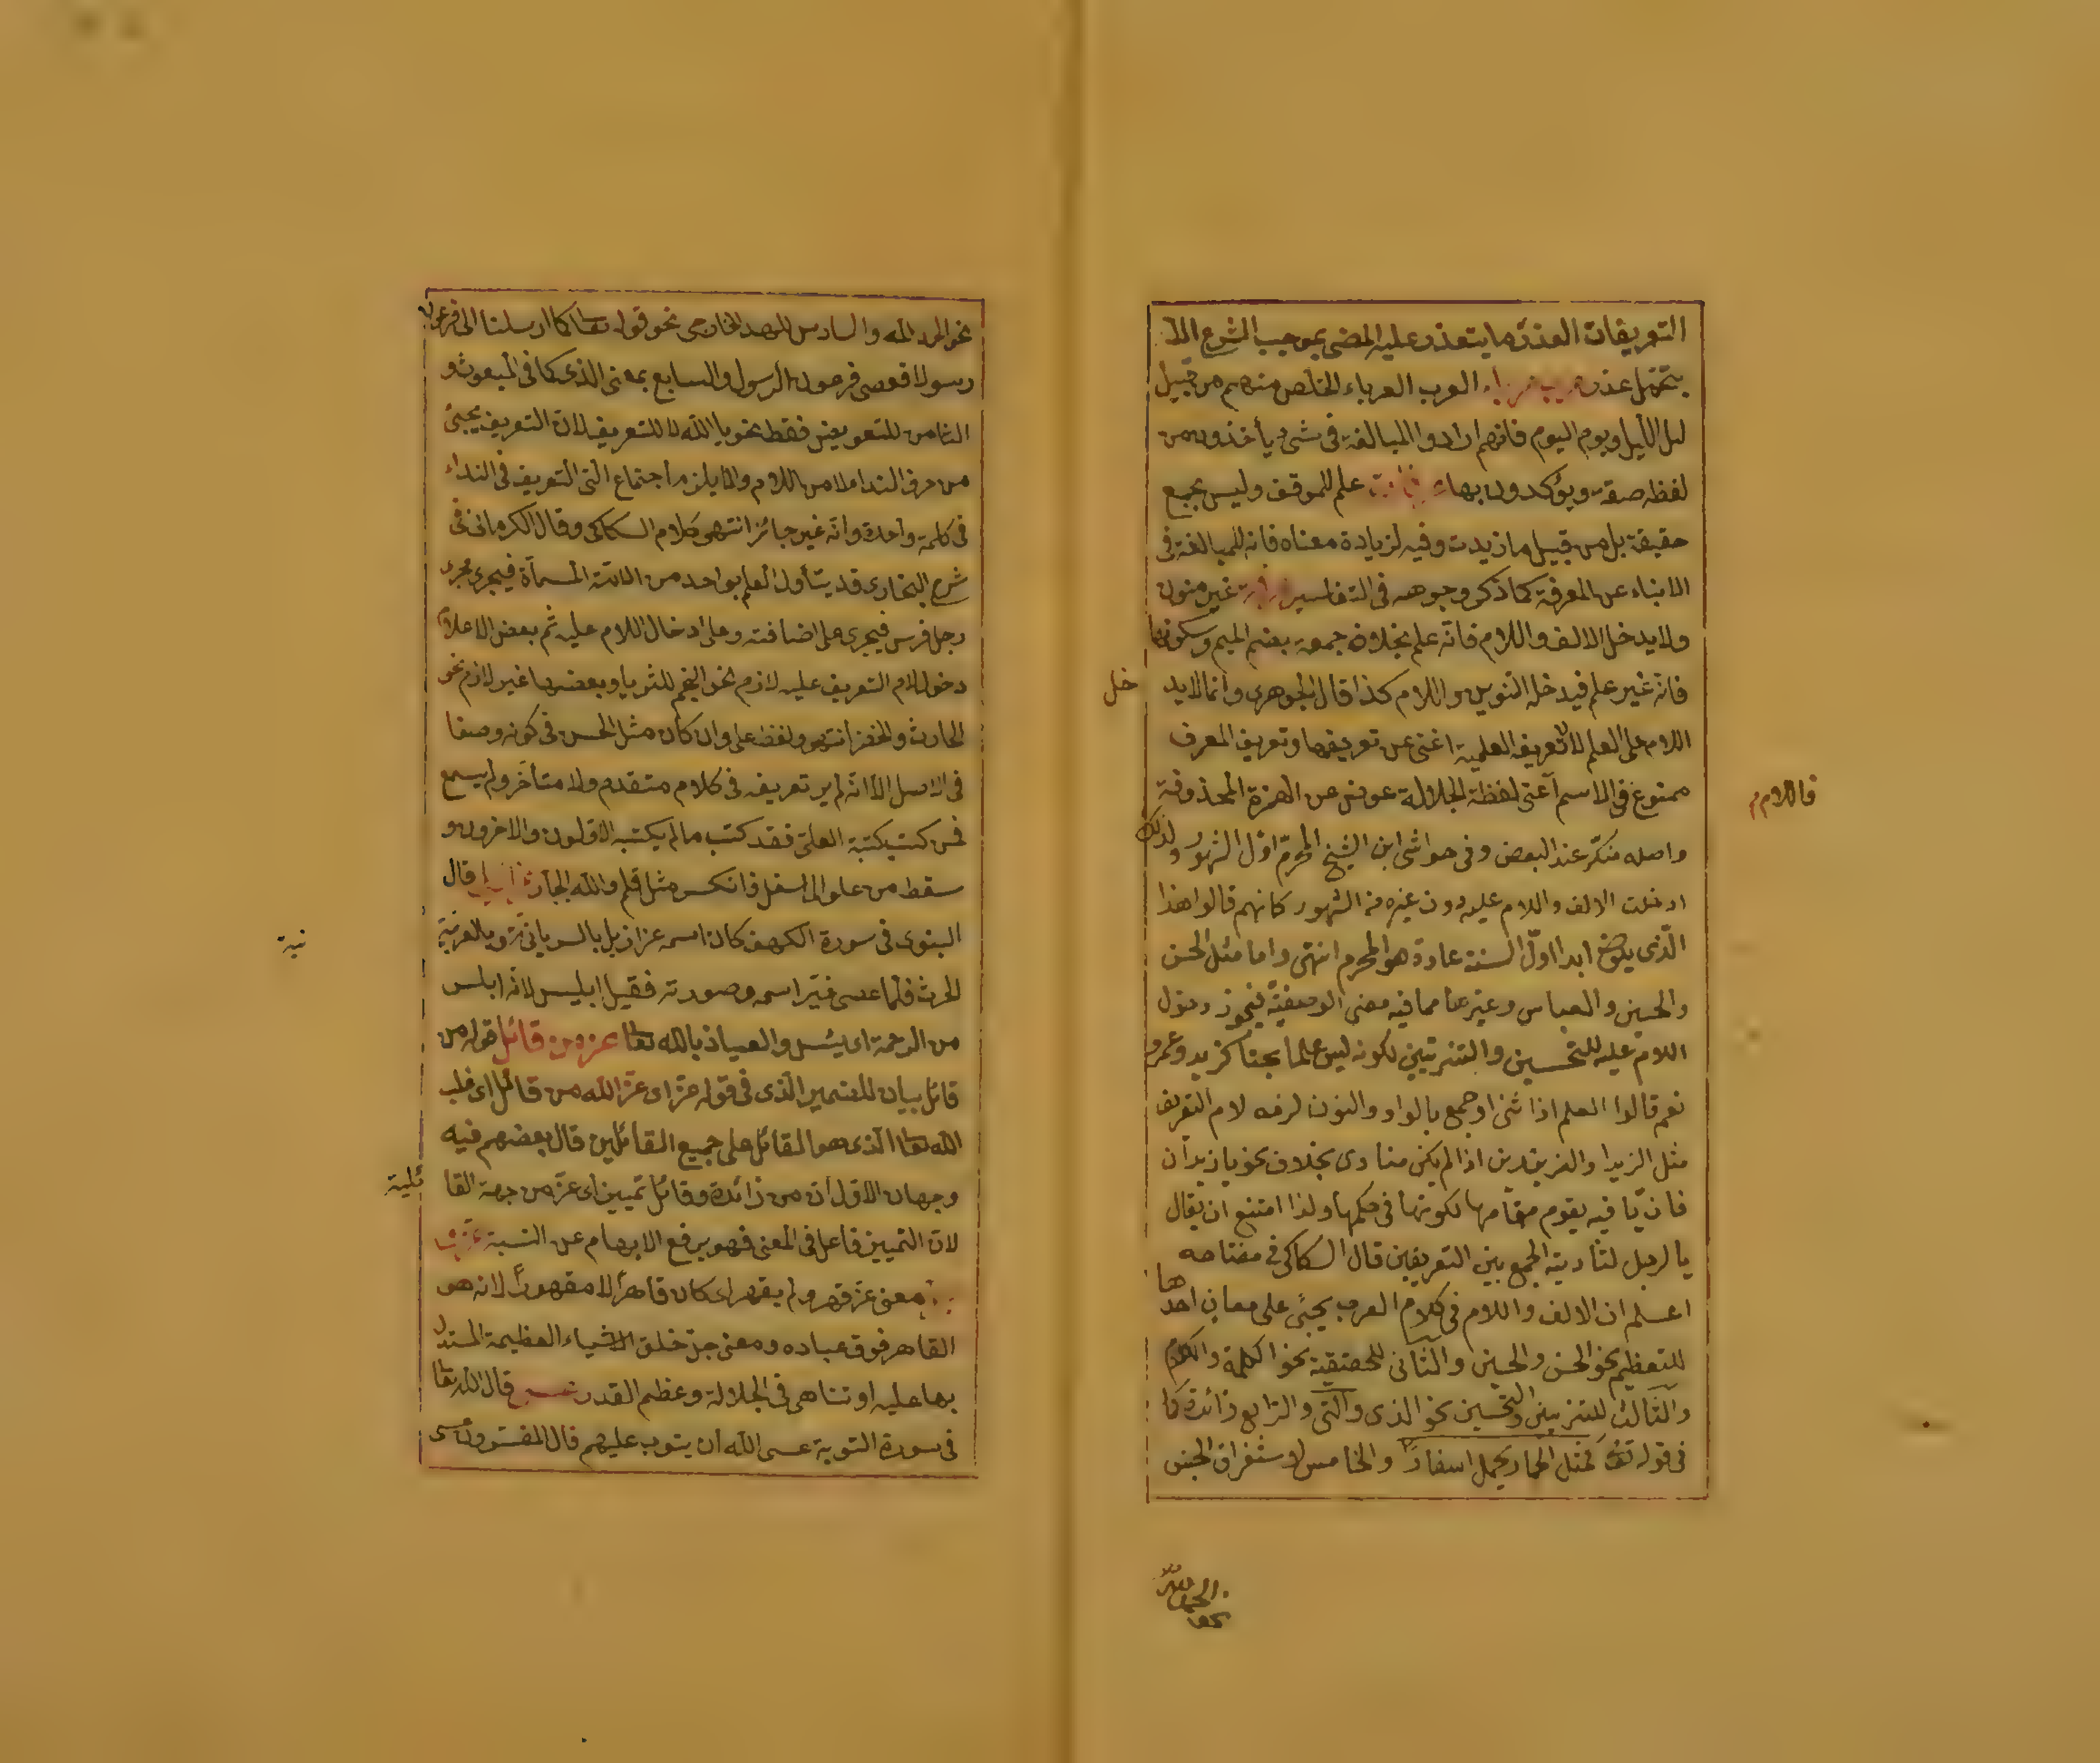 التعريفات العذر ما يتعذر عليه المضى بموجب الشرع الا
بتحمل عذر العرب العرباء الخلص منهم من قبيل
ليل الأيل ويوم اليوم فانهم ارادوا المبالغة فى شىء يأخذون من
لفظه صفة ويؤكدون بها علم للموقف وليس بجمع
حقيقة بل من قبيل ما زيدت وفيه لزيادة معناه فانه للمبالغة فى
الانباء عن المعرفة كما ذكر وجوهه فى التفاسير غير منون
ولا يدخل الالف واللام فانه علم بخلاف جمعة بضم الميم وسكونها
فانه غير علم فيدخله التنوين واللام كذا قال الجوهرى وانما لا يد
خل
اللام على العلم لان تعريف العلمية اغنى عن تعريفها وتعريف المعرف
ممنوع فى الاسم اعنى لفظة الجلالة عوض عن الهمزة المحذوفة
فاللام م
واصله منكر عند البعض وفى حواشى ابن الشيخ المحرم اول الشهور ولذلك
ادخلت الالف واللام عليه دون غيره من الشهور كانهم قالوا هذا
الذى يكون ابدا اول السنة عادة هو المحرم انتهى واما مثل الحسن
والحسين والعباس وغيرها مما فيه معنى الوصفية فيجوز دخول
اللام عليه للتحسين والتزيين لكونه ليس علما بحتا كزيد وعمرو
نعم قالوا العلم اذا ثنى او جمع بالواو والنون لزمه لام التعريف
مثل الزيدان والفرقدين اذا لم يكن منادى بخلاف نحو يا زيدان
فان يا فيه يقوم مقامها لكونها فى حكمها ولذا امتنع ان يقال
يا الرجل لتأدية الجمع بين التعريفين قال السكاكى فى مفتاحه
اعلم ان الالف واللام فى كلام العرب يجئ على معان احدها
للتعظيم نحو الحسن والحسين والثانى للحقيقة نحو الكلمة والكلام
والثالث للتزيين والتحسين نحو الذى والتى والرابع زائدة كما
فى قوله تع كمثل الحمار يحمل اسفارا والخامس لاستغراق الجنس
نحو الحمد لله
نحو الحمد لله والسادس للعهد الخارجى نحو قوله تعا كما ارسلنا الى فرعون
رسولا فعصى فرعون الرسول والسابع بمعنى الذى كما فى المبعوث و
الثامن للتعويض فقط نحو يا الله لا للتعريف لان التعريف يجئ
من حرف النداء لا من اللام والا يلزم اجتماع التى التعريف فى النداء
فى كلمة واحدة وانه غير جائز انتهى كلام السكاكى وقال الكرمانى فى
شرح البخارى قد يتأول العلم بواحد من الامة المسماة فيجرى مجرى
رجل وفرس فيجرى على اضافته وعلى ادخال اللام عليه ثم بعض الاعلام
دخول لام التعريف عليه لازم نحو النجم للثريا وبعضها غير لازم نحو
الحارث والخضر انتهى ولفظ على وان كان مثل الحسن فى كونه وصفا
فى الاصل الا انه لم ير تعريفه فى كلام متقدم ولا متأخر ولم يسمع
فمن كتب بكتبة العلى فقد كتب ما لم يكتبه الاولون والاخرون و
سقط من علو الى اسفل فانكسر مثل قلم والله الجار قال
البغوى فى سورة الكهف كان اسمه عزازيل بالسريانية وبالعربية
نية
الحرث فلما عصى غير اسمه وصورته فقيل ابليس لانه ابلس
من الرحمة اى يئس والعياذ بالله تعا عز من قائل قوله من
قائل بيان للضمير الذى فى قوله عز اى عز الله من قائل اى غلب
الله تعا الذى هو القائل على جميع القائلين قال بعضهم فيه
وجهان الاول ان من زائدة وقائل تمييز اى عز من جهة القا
ئلية
لان التمييز فاعل فى المعنى فهو يرفع الابهام عن النسبة
معنى عز قهر ولم يقهر اى كان قاهرا لا مقهورا لانه هو
القاهر فوق عباده ومعنى جل خلق الاشياء العظيمة المستدل
بها عليه او تناهى فى الجلالة وعظم القدر قال الله تعا
فى سورة التوبة عسى الله ان يتوب عليهم قال المفسرون عسى